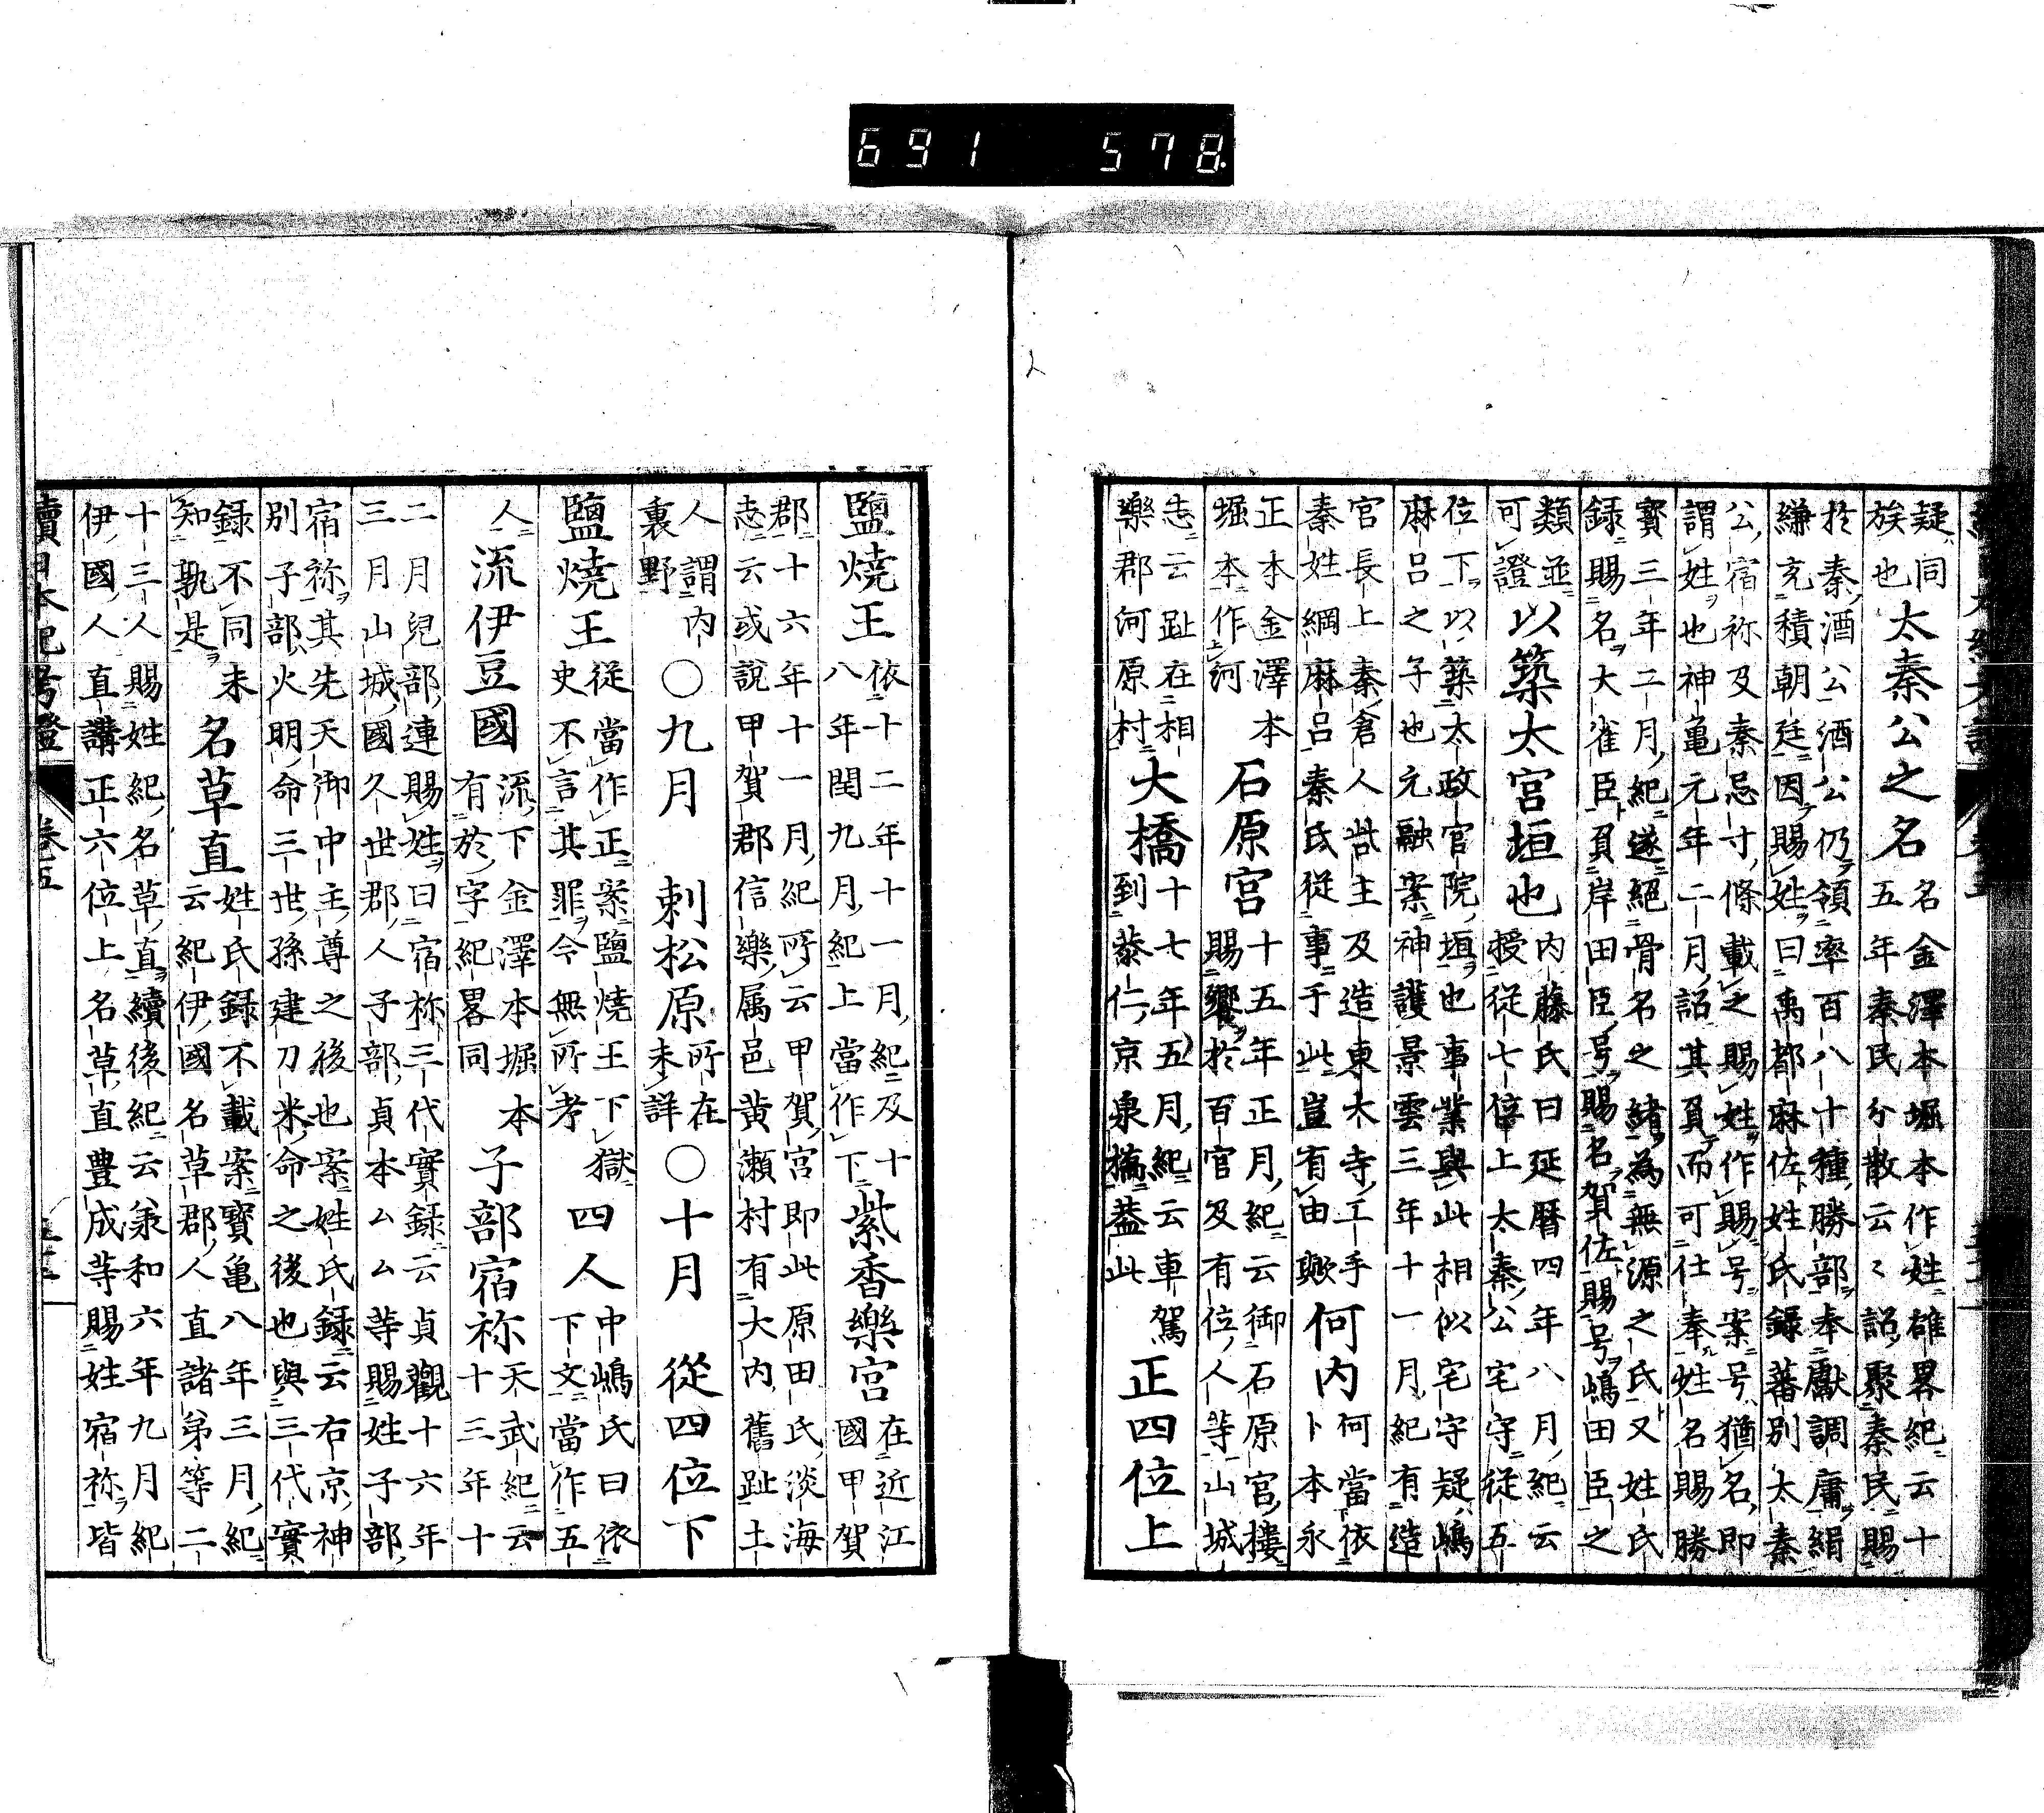 疑同
族也
太秦公之名
名金澤本堀本作姓雄畧紀云十
五年秦民分散云〻詔聚秦民賜
於秦酒公酒公仍領率百八十種勝部奉獻調庸絹
縑充積朝廷因賜姓曰禹都麻佐姓氏録蕃別太秦
公宿祢及秦忌寸條載之賜姓作賜号案号猶名即
謂姓也神亀元年二月詔其負而可仕奉姓名賜勝
寳三年二月紀遂絕骨名之緒為無源之氏又姓氏
録賜名大雀臣負岸田臣号賜名賀佐賜号嶋田臣之
類並
可證
以築太宮垣也
内藤氏曰延暦四年八月紀云
授従七位上太秦公宅守従五
位下以築太政官院垣也事業與此相似宅守疑嶋
麻呂之子也元融案神護景雲三年十一月紀有造
官長上秦倉人呰主及造東大寺工手
秦姓綱麻呂秦氏従事于此豈有由歟
何内
何當依
卜本永
正本金澤本
堀本作河
石原宮
十五年正月紀云御石原宮樓
賜饗於百官及有位人等山城
志云趾在相
樂郡河原村
大橋
十七年五月紀云車駕
到恭仁京泉橋蓋此
正四位上
鹽燒王
依十二年十一月紀及十
八年閏九月紀上當作下
紫香樂宮
在近江
國甲賀
郡十六年十一月紀所云甲賀宮即此原田氏淡海
志云或說甲賀郡信樂属邑黄瀬村有大内舊趾土
人謂内
裏野
○九月
刺松原
所在
未詳
○十月
從四位下
鹽燒王
従當作正案鹽燒王下獄
史不言其罪今無所考
四人
中嶋氏曰依
下文當作五
人
流伊豆國
流下金澤本堀本
有於字紀畧同
子部宿祢
天武紀云
十三年十
二月兒部連賜姓曰宿祢三代實録云貞觀十六年
三月山城國久世郡人子部貞本ムム等賜姓子部
宿祢其先天御中主尊之後也案姓氏録云右京神
別子部火明命三世孫建刀米命之後也與三代實
録不同未
知孰是
名草直
姓氏録不載案寳亀八年三月紀
云紀伊國名草郡人直諸弟等二
十三人賜姓紀名草直續後紀云兼和六年九月紀
伊國人直講正六位上名草直豊成等賜姓宿祢皆